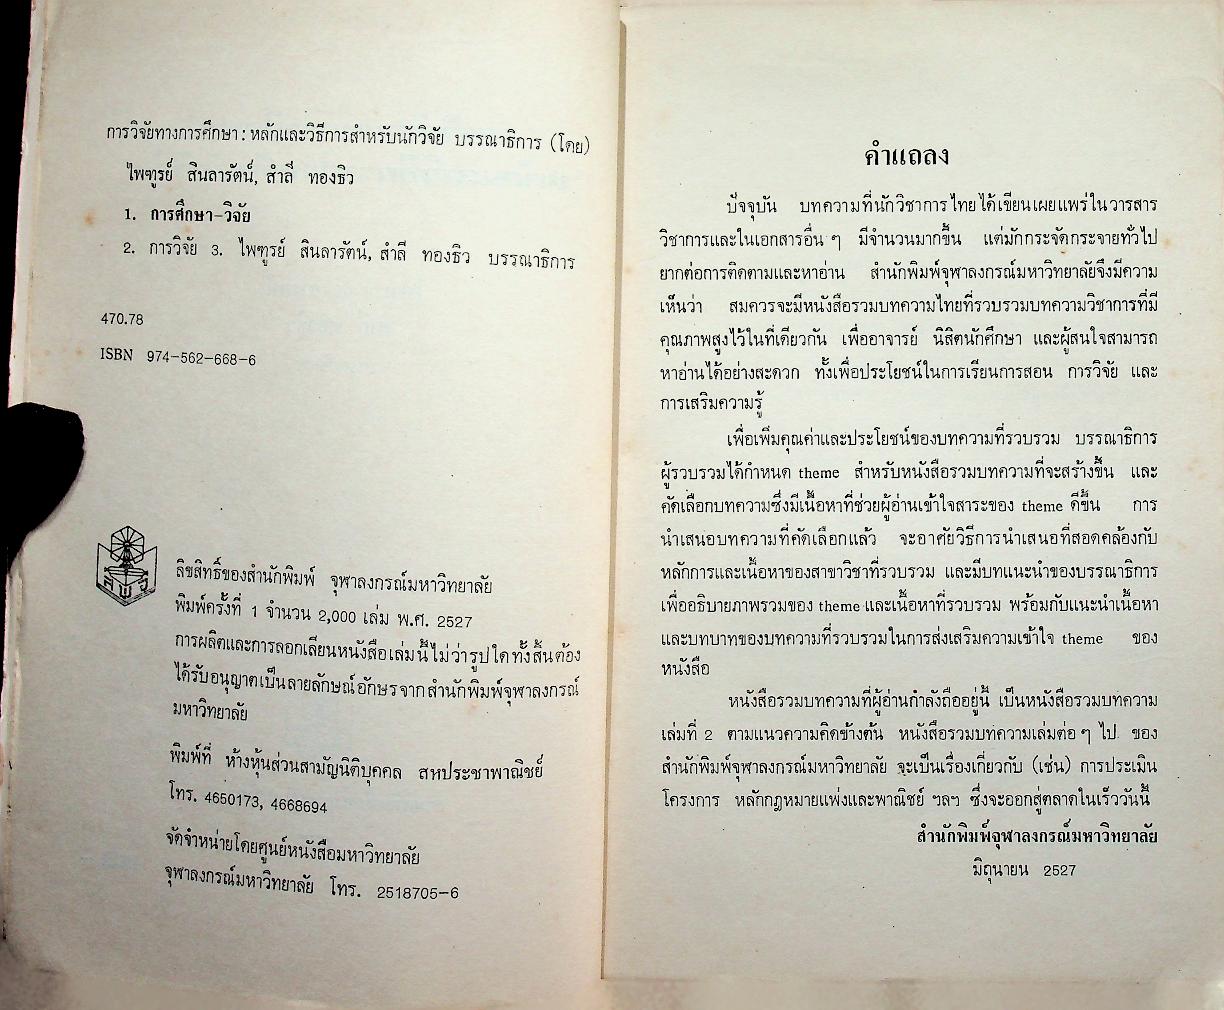 การวิจัยทางการศึกษา : หลักและวิธีการสำหรับนักวิจัย บรรณาธิการ (โดย)
ไพฑูรย์ สินลารัตน์, สำลี ทองธิว
1. การศึกษา-วิจัย
2. การวิจัย 3. ไพฑูรย์ สินลารัตน์, สำลี ทองธิว บรรณาธิการ
470.78
ISBN 974-562-668-6
ส พ จ
ลิขสิทธิ์ของสำนักพิมพ์ จุฬาลงกรณ์มหาวิทยาลัย
พิมพ์ครั้งที่ 1 จำนวน 2,000 เล่ม พ.ศ. 2527
การผลิตและการลอกเลียนหนังสือเล่มนี้ไม่ว่ารูปใดทั้งสิ้นต้อง
ได้รับอนุญาตเป็นลายลักษณ์อักษรจากสำนักพิมพ์จุฬาลงกรณ์
มหาวิทยาลัย
พิมพ์ที่ ห้างหุ้นส่วนสามัญนิติบุคคล สหประชาพาณิชย์
โทร. 4650173, 4668694
จัดจำหน่ายโดยศูนย์หนังสือมหาวิทยาลัย
จุฬาลงกรณ์มหาวิทยาลัย โทร. 2518705-6
คำแถลง
ปัจจุบัน บทความที่นักวิชาการไทยได้เขียนเผยแพร่ในวารสาร
วิชาการและในเอกสารอื่น ๆ มีจำนวนมากขึ้น แต่มักกระจัดกระจายทั่วไป
ยากต่อการติดตามและหาอ่าน สำนักพิมพ์จุฬาลงกรณ์มหาวิทยาลัยจึงมีความ
เห็นว่า สมควรจะมีหนังสือรวมบทความไทยที่รวบรวมบทความวิชาการที่มี
คุณภาพสูงไว้ในที่เดียวกัน เพื่ออาจารย์ นิสิตนักศึกษา และผู้สนใจสามารถ
หาอ่านได้อย่างสะดวก ทั้งเพื่อประโยชน์ในการเรียนการสอน การวิจัย และ
การเสริมความรู้
เพื่อเพิ่มคุณค่าและประโยชน์ของบทความที่รวบรวม บรรณาธิการ
ผู้รวบรวมได้กำหนด theme สำหรับหนังสือรวมบทความที่จะสร้างขึ้น และ
คัดเลือกบทความซึ่งมีเนื้อหาที่ช่วยผู้อ่านเข้าใจสาระของ theme ดีขึ้น การ
นำเสนอบทความที่คัดเลือกแล้ว จะอาศัยวิธีการนำเสนอที่สอดคล้องกับ
หลักการและเนื้อหาของสาขาวิชาที่รวบรวม และมีบทแนะนำของบรรณาธิการ
เพื่ออธิบายภาพรวมของ theme และเนื้อหาที่รวบรวม พร้อมกับแนะนำเนื้อหา
และบทบาทของบทความที่รวบรวมในการส่งเสริมความเข้าใจ theme ของ
หนังสือ
หนังสือรวมบทความที่ผู้อ่านกำลังถืออยู่นี้ เป็นหนังสือรวมบทความ
เล่มที่ 2 ตามแนวความคิดข้างต้น หนังสือรวมบทความเล่มต่อ ๆ ไป ของ
สำนักพิมพ์จุฬาลงกรณ์มหาวิทยาลัย จะเป็นเรื่องเกี่ยวกับ (เช่น) การประเมิน
โครงการ หลักกฎหมายแพ่งและพาณิชย์ ฯลฯ ซึ่งจะออกสู่ตลาดในเร็ววันนี้
สำนักพิมพ์จุฬาลงกรณ์มหาวิทยาลัย
มิถุนายน 2527